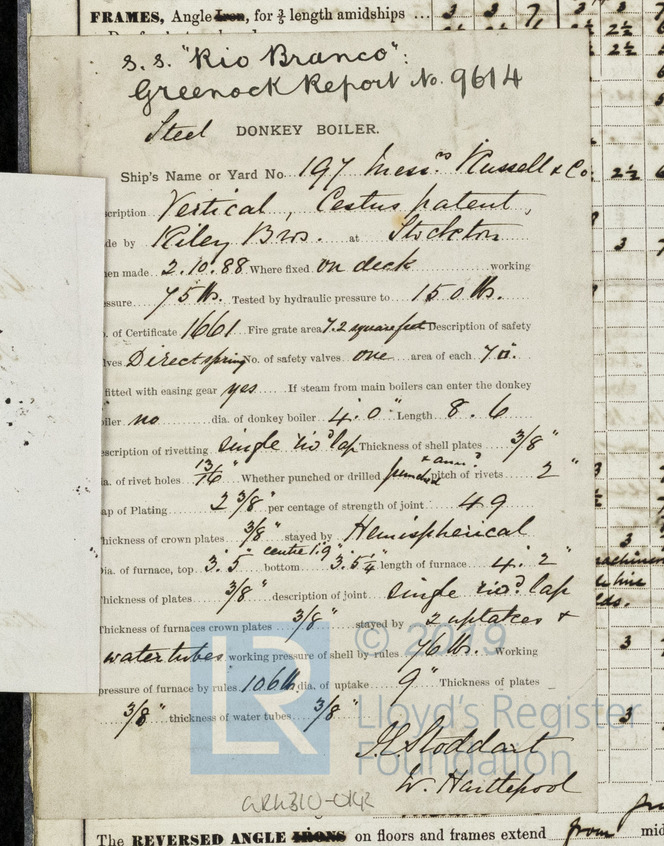 FRAMES, Angle Iron, for 3/5 length amidships ... 3 3 7
s. s. "Rio Branco":
Greenock Report No. 9614
Steel DONKEY BOILER.
Ship's Name or Yard No. 197 Mess.rs Russell & Co.
scription Vertical, Cestus patent,
de by Riley Bros. at Stockton
en made 2.10.88 Where fixed on deck working
ssure 75 lb. Tested by hydraulic pressure to 150 lb.
o. of Certificate 1661 Fire grate area 7.2 square feet Description of safety
lves Direct spring No. of safety valves one area of each 7□".
fitted with easing gear yes If steam from main boilers can enter the donkey
oiler no dia. of donkey boiler 4'. 0" Length 8. 6
escription of rivetting single riv.d lap Thickness of shell plates 3/8"
ia. of rivet holes 13/16" Whether punched or drilled punched & ann.d pitch of rivets 2"
ap of Plating 2 3/8" per centage of strength of joint 49
hickness of crown plates 3/8" stayed by Hemispherical
ia. of furnace, top 3'. 5" centre 1.9" bottom 3'. 5 1/4" length of furnace 4'. 2"
hickness of plates 3/8" description of joint single riv.d lap
hickness of furnaces crown plates 3/8" stayed by 2 uptakes &
water tubes working pressure of shell by rules 76 lb. Working
pressure of furnace by rules 106 lb dia. of uptake 9" Thickness of plates
3/8" thickness of water tubes 3/8"
© 2019
LR
Lloyd's Register
Foundation
Stoddart
W. Hartlepool
The REVERSED ANGLE IRONS on floors and frames extend from mid